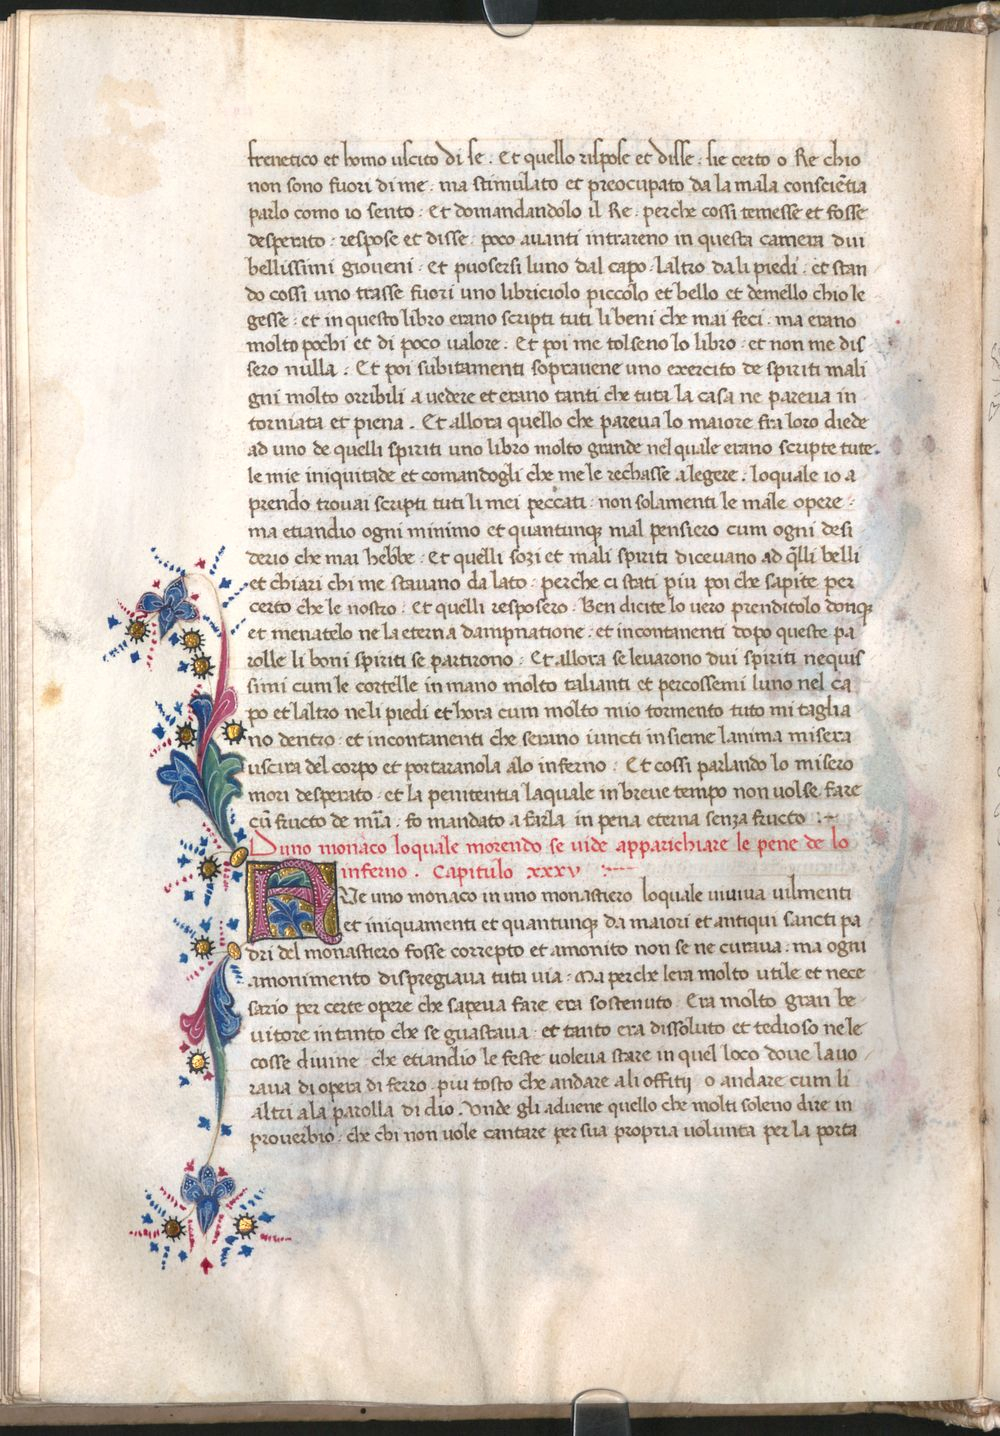 frenetico et homo uscito di se . Et quello rispose et disse : sie certo o Re chio
non sono fuori di me : ma stimulato et preocupato da la mala consciẽtia
parlo como io sento : Et domandandolo il Re : perche cossi temesse et fosse
desperato : respose et disse : poco auanti intrareno in questa camera dui
bellissimi gioueni : et puosersi luno dal capo : laltro da li piedi : et stan
do cossi uno trasse fuori uno libriciolo piccolo et bello et demello chio le
gesse : et in questo libro erano scripti tuti li beni che mai feci : ma erano
molto pochi et di poco ualore : Et poi me tolseno lo libro : et non me dis
sero nulla : Et poi subitamenti soprauene uno exercito de spiriti mali
gni molto orribili a vedere et erano tanti che tuta la casa ne pareua in
torniata et piena . Et allora quello che pareua lo maiore fra loro diede
ad uno de quelli spiriti uno libro molto grande nel quale erano scripte tute
le mie iniquitade et comandogli che me le rechasse a legere : loquale io a
prendo trouai scripti tuti li mei peccati : non solamenti le male opere :
ma etiandio ogni minimo et quantunq mal pensiero cum ogni desi
derio che mai hebbe : Et quelli sozi et mali spiriti diceuano ad q̃lli belli
et chiari chi me stauano da lato : perche ci stati piu poi che sapite per
certo che le nostro : Et quelli resposero : Ben dicite lo uero prenditolo donq
et menatelo ne la eterna dampnatione : et incontanenti dopo queste pa
rolle li boni spiriti se partirono : Et allora se leuarono dui spiriti nequis
simi cum le cortelle in mano molto talianti et percossemi luno nel ca
po et laltro ne li piedi et hora cum molto mio tormento tuto mi taglia
no dentro : et incontanenti che serano iuncti insieme lanima misera
uscira del corpo et portaranola alo inferno : Et cossi parlando lo misero
mori desperato : et la penitentia laquale in breue tempo non uolse fare
cũ fructo de mĩa : fo mandato a farla in pena eterna senza fructo :
Duno monaco loquale morendo se vide apparichiare le pene de lo
inferno . Capitulo xxxv
Ue uno monaco in uno monastiero loquale uiuiua uilmenti
et iniquamenti et quantunq da maiori et antiqui sancti pa
dri del monastiero fosse correpto et amonito non se ne curaua : ma ogni
amonimento dispregiaua tuta uia : Ma perche lera molto utile et nece
sario per certe opere che sapeua fare era sostenuto : Era molto gran be
uitore in tanto che se guastaua : et tanto era dissoluto et tedioso ne le
cosse diuine che etiandio le feste uoleua stare in quel loco doue lauo
raua di opera di ferro piu tosto che andare a li offitij o andare cum li
altri a la parolla di dio . Unde gli aduene quello che molti soleno dire in
prouerbio : che chi non uole cantare per sua propria uolunta per la porta